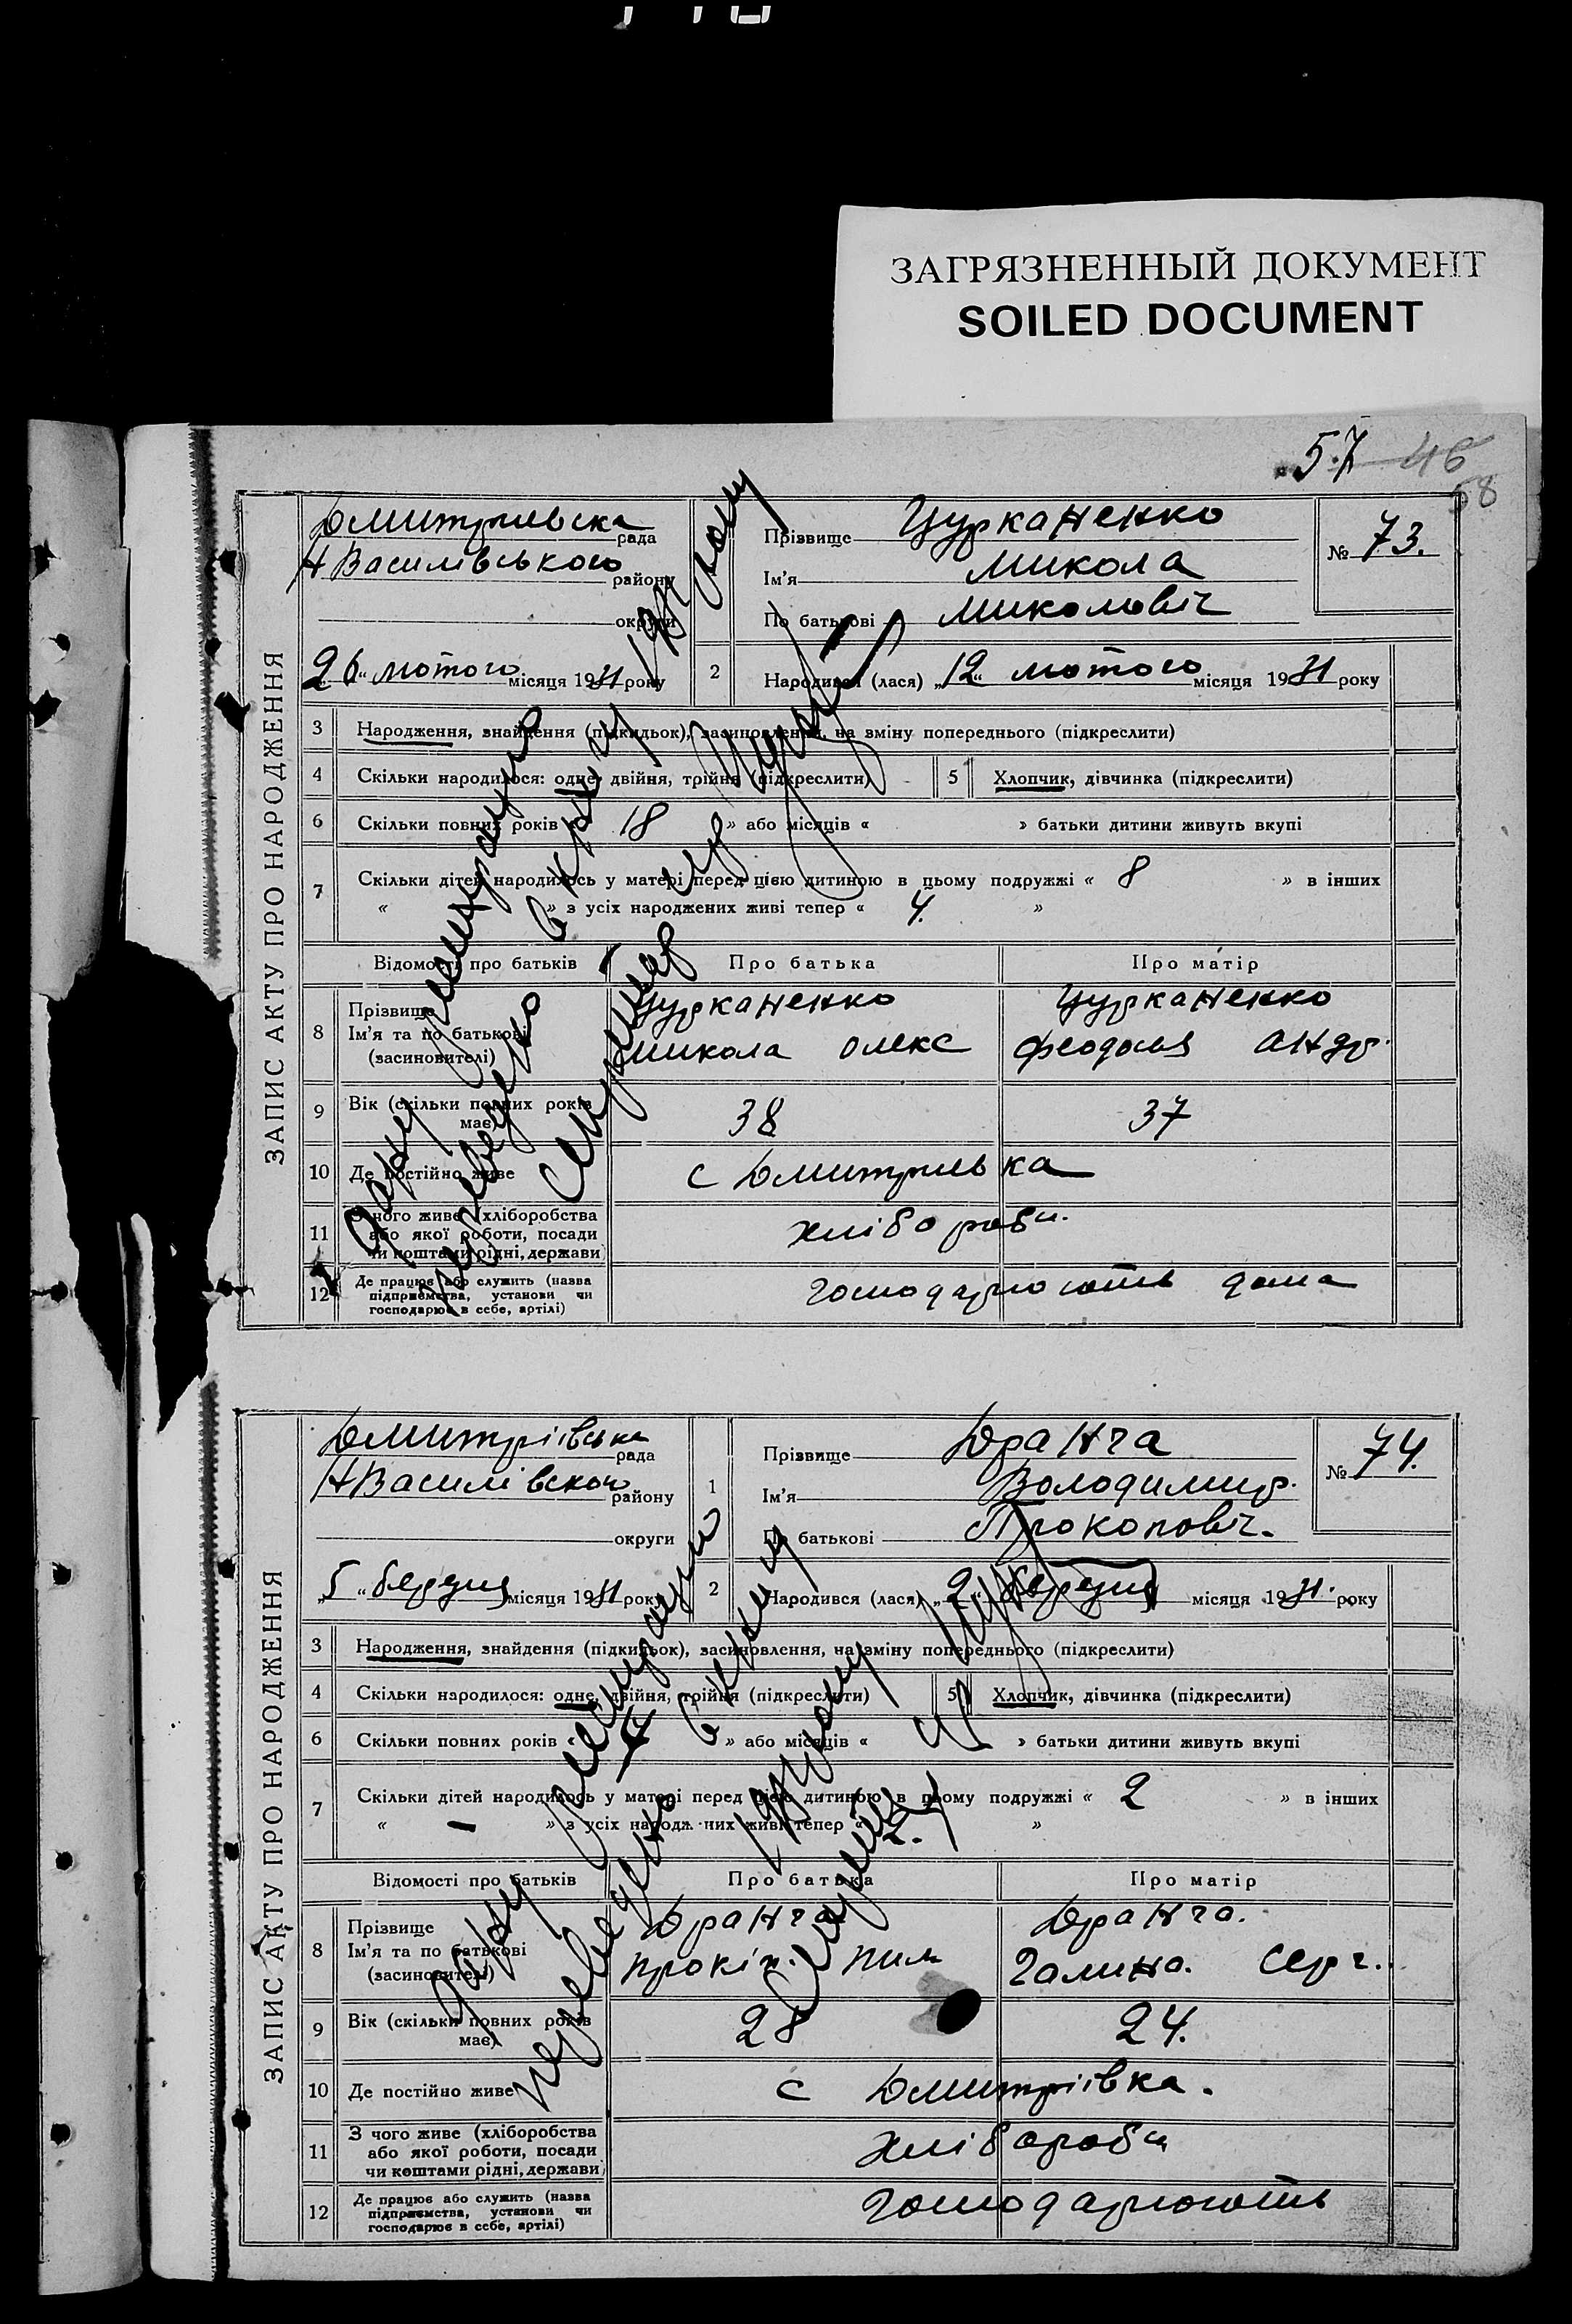 ЗАГРЯЗНЕННЫЙ ДОКУМЕНТ
SOILED DOCUMENT
57 46
58
ЗАПИС АКТУ ПРО НАРОДЖЕННЯ
Дмитриевська рада
Н Василівського району
округи
Прізвище Цурканенко
Ім'я Микола
По батькові Миколовіч
№ 73.
26 лютого місяця 1931 року
2 Народився (лася) „12“ лютого місяця 1931 року
3 Народження, знайдення (підкидьок), засиновлення, на зміну попереднього (підкреслити)
4 Скільки народилося: одне, двійня, трійня (підкреслити)
5 Хлопчик, дівчинка (підкреслити)
6 Скільки повних років « 18 » або місяців « » батьки дитини живуть вкупі
7 Скільки дітей народилось у матері перед цією дитиною в цьому подружжі « 8 » в інших
« » з усіх народжених живі тепер « 4. »
Відомості про батьків Про батька Про матір
8 Прізвище Ім'я та по батькові (засиновителі)
Цурканенко Цурканенко
Микола Олекс Феодосія Андр.
9 Вік (скільки повних років має) 38 37
10 Де постійно живе с Дмитриевка
11 З чого живе (хліборобства
або якої роботи, посади
чи коштами рідні, держави)
хлібороби.
12 Де працює або служить (назва
підприємства, установи чи
господарює в себе, артілі)
господарюють дома
ЗАПИС АКТУ ПРО НАРОДЖЕННЯ
Дмитріівська рада
Н Василівского району
округи
1 Прізвище Дранга
Ім'я Володимир.
По батькові Прокоповіч.
№ 74.
„5“ березня місяця 1931 року
2 Народився (лася) „2“ березня місяця 1931. року
3 Народження, знайдення (підкидьок), засиновлення, на зміну попереднього (підкреслити)
4 Скільки народилося: одне, двійня, трійня (підкреслити)
5 Хлопчик, дівчинка (підкреслити)
6 Скільки повних років « » або місяців « » батьки дитини живуть вкупі
7 Скільки дітей народилось у матері перед цією дитиною в цьому подружжі « 2 » в інших
« — » з усіх народжених живі тепер « 2. »
Відомості про батьків Про батька Про матір
8 Прізвище Ім'я та по батькові (засиновителі)
Дранга Дранга.
Прокіп. Пил Галина. Серг.
9 Вік (скільки повних років має) 28 24.
10 Де постійно живе с Дмитріівка.
11 З чого живе (хліборобства
або якої роботи, посади
чи коштами рідні, держави)
Хлібороби
12 Де працює або служить (назва
підприємства, установи чи
господарює в себе, артілі)
господарюють